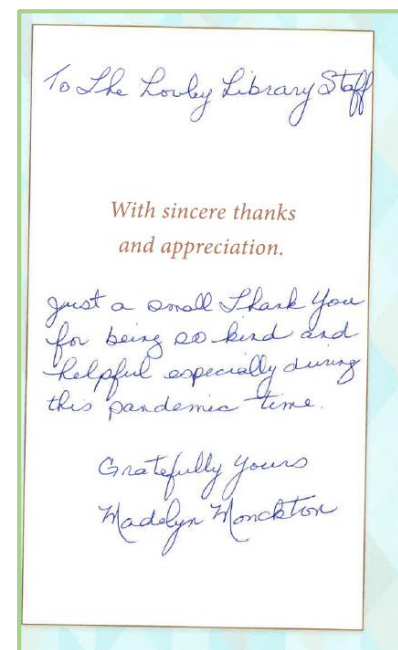 To The Lovley Library Staff
With sincere thanks
and appreciation.
Just a small Thank You
for being so kind and
helpful especially during
this pandemic time.
Gratefully yours
Madelyn Monckton